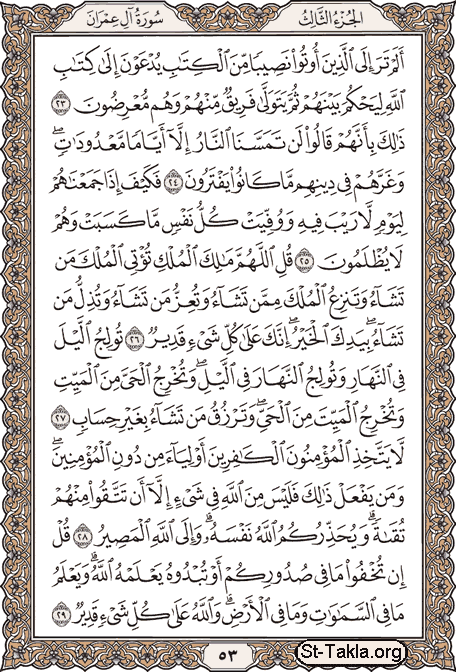 سُورَةُ آلِ عِمْرَانَ
الجُزْءُ الثَّالِثُ
أَلَمْ تَرَ إِلَى ٱلَّذِينَ أُوتُوا۟ نَصِيبًا مِّنَ ٱلْكِتَٰبِ يُدْعَوْنَ إِلَىٰ كِتَٰبِ
ٱللَّهِ لِيَحْكُمَ بَيْنَهُمْ ثُمَّ يَتَوَلَّىٰ فَرِيقٌ مِّنْهُمْ وَهُم مُّعْرِضُونَ ٢٣
ذَٰلِكَ بِأَنَّهُمْ قَالُوا۟ لَن تَمَسَّنَا ٱلنَّارُ إِلَّآ أَيَّامًا مَّعْدُودَٰتٍ ۖ
وَغَرَّهُمْ فِى دِينِهِم مَّا كَانُوا۟ يَفْتَرُونَ ٢٤ فَكَيْفَ إِذَا جَمَعْنَٰهُمْ
لِيَوْمٍ لَّا رَيْبَ فِيهِ وَوُفِّيَتْ كُلُّ نَفْسٍ مَّا كَسَبَتْ وَهُمْ
لَا يُظْلَمُونَ ٢٥ قُلِ ٱللَّهُمَّ مَٰلِكَ ٱلْمُلْكِ تُؤْتِى ٱلْمُلْكَ مَن
تَشَآءُ وَتَنزِعُ ٱلْمُلْكَ مِمَّن تَشَآءُ وَتُعِزُّ مَن تَشَآءُ وَتُذِلُّ مَن
تَشَآءُ ۖ بِيَدِكَ ٱلْخَيْرُ ۖ إِنَّكَ عَلَىٰ كُلِّ شَىْءٍ قَدِيرٌ ٢٦ تُولِجُ ٱلَّيْلَ
فِى ٱلنَّهَارِ وَتُولِجُ ٱلنَّهَارَ فِى ٱلَّيْلِ ۖ وَتُخْرِجُ ٱلْحَىَّ مِنَ ٱلْمَيِّتِ
وَتُخْرِجُ ٱلْمَيِّتَ مِنَ ٱلْحَىِّ ۖ وَتَرْزُقُ مَن تَشَآءُ بِغَيْرِ حِسَابٍ ٢٧
لَّا يَتَّخِذِ ٱلْمُؤْمِنُونَ ٱلْكَٰفِرِينَ أَوْلِيَآءَ مِن دُونِ ٱلْمُؤْمِنِينَ ۖ
وَمَن يَفْعَلْ ذَٰلِكَ فَلَيْسَ مِنَ ٱللَّهِ فِى شَىْءٍ إِلَّآ أَن تَتَّقُوا۟ مِنْهُمْ
تُقَىٰةً ۗ وَيُحَذِّرُكُمُ ٱللَّهُ نَفْسَهُۥ ۗ وَإِلَى ٱللَّهِ ٱلْمَصِيرُ ٢٨ قُلْ
إِن تُخْفُوا۟ مَا فِى صُدُورِكُمْ أَوْ تُبْدُوهُ يَعْلَمْهُ ٱللَّهُ ۗ وَيَعْلَمُ
مَا فِى ٱلسَّمَٰوَٰتِ وَمَا فِى ٱلْأَرْضِ ۗ وَٱللَّهُ عَلَىٰ كُلِّ شَىْءٍ قَدِيرٌ ٢٩
٥٣
St-Takla.org